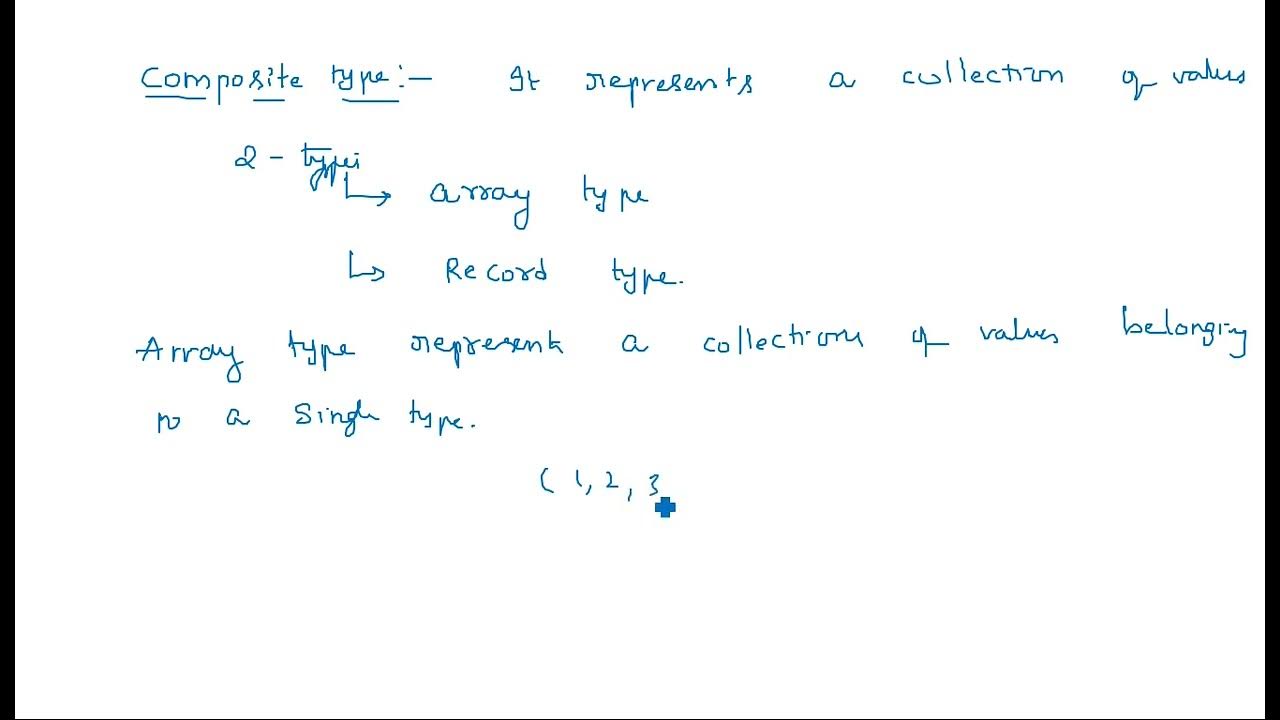 Composite type:- It represents a collection of values
2 - types
↳ array type
↳ Record type.
Array type represents a collections of values belonging
to a single type.
( 1, 2, 3